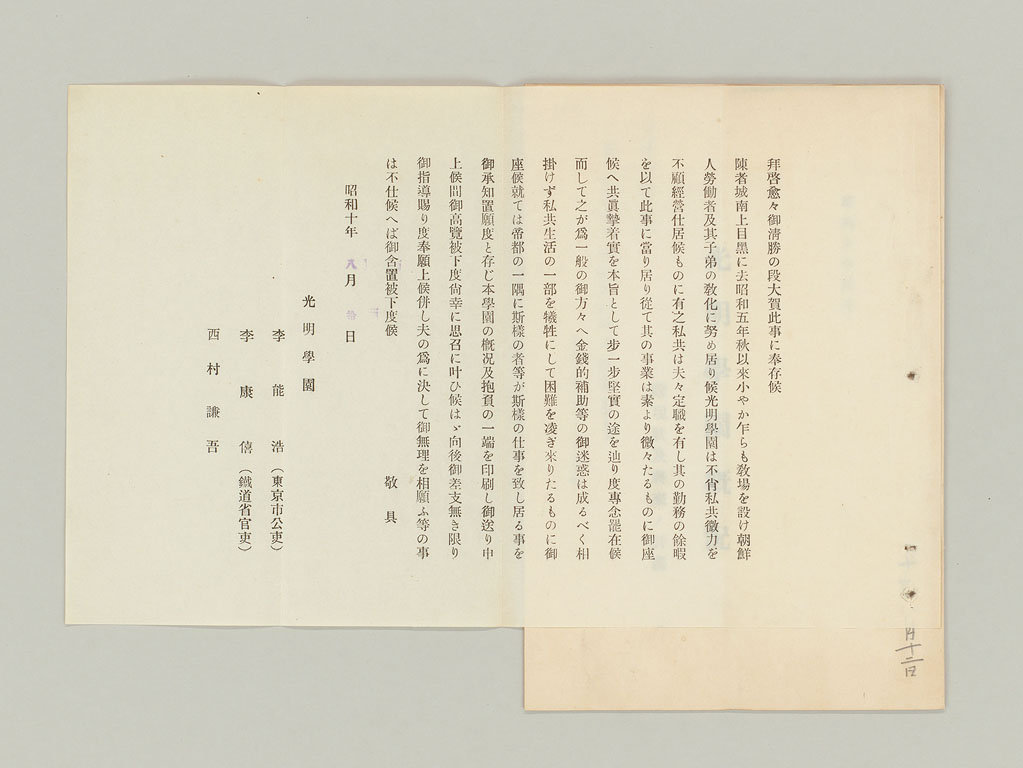 拜啓愈々御淸勝の段大賀此事に奉存候
陳者城南上目黑に去昭和五年秋以來小やか乍らも敎場を設け朝鮮
人勞働者及其子弟の敎化に努め居り候光明學園は不肖私共微力を
不顧經營仕居候ものに有之私共は夫々定職を有し其の勤務の餘暇
を以て此事に當り居り從て其の事業は素より微々たるものに御座
候へ共眞摯着實を本旨として步一步堅實の途を辿り度專念罷在候
而して之が爲一般の御方々へ金錢的補助等の御迷惑は成るべく相
掛けず私共生活の一部を犧牲にして困難を凌ぎ來りたるものに御
座候就ては帝都の一隅に斯樣の者等が斯樣の仕事を致し居る事を
御承知置願度と存じ本學園の槪况及抱負の一端を印刷し御送り申
上候間御高覽被下度尙幸に思召に叶ひ候はゞ向後御差支無き限り
御指導賜り度奉願上候倂し夫の爲に決して御無理を相願ふ等の事
は不仕候へば御含置被下度候 敬具
昭和十年 八月 日
光明學園
李能浩(東京市公吏)
李康僖(鐵道省官吏)
西村謙吾
月十二日